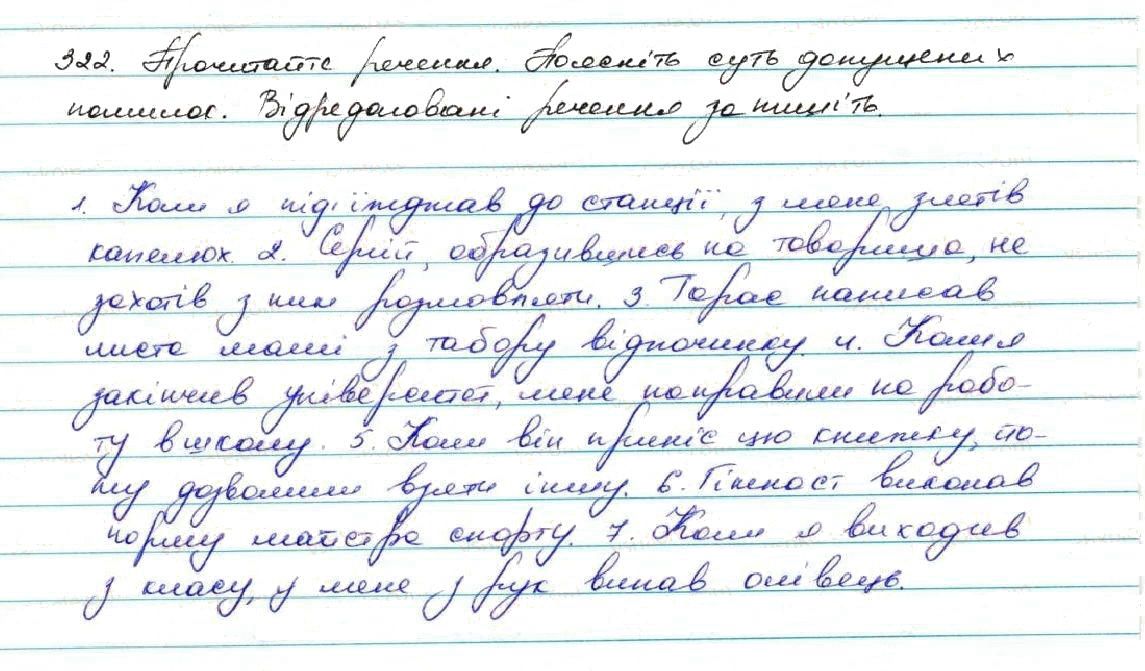 322. Прочитайте речення. Поясніть суть допущених
помилок. Відредаговані речення запишіть.
1. Коли я під'їжджав до станції, з мене злетів
капелюх. 2. Сергій, образившись на товариша, не
захотів з ним розмовляти. 3. Тарас написав
листа мамі з табору відпочинку. 4. Коли я
закінчив університет, мене направили на робо-
ту в школу. 5. Коли він приніс цю книжку, йо-
му дозволили взяти іншу. 6. Гімнаст виконав
норму майстра спорту. 7. Коли я виходив
з класу, у мене з рук випав олівець.